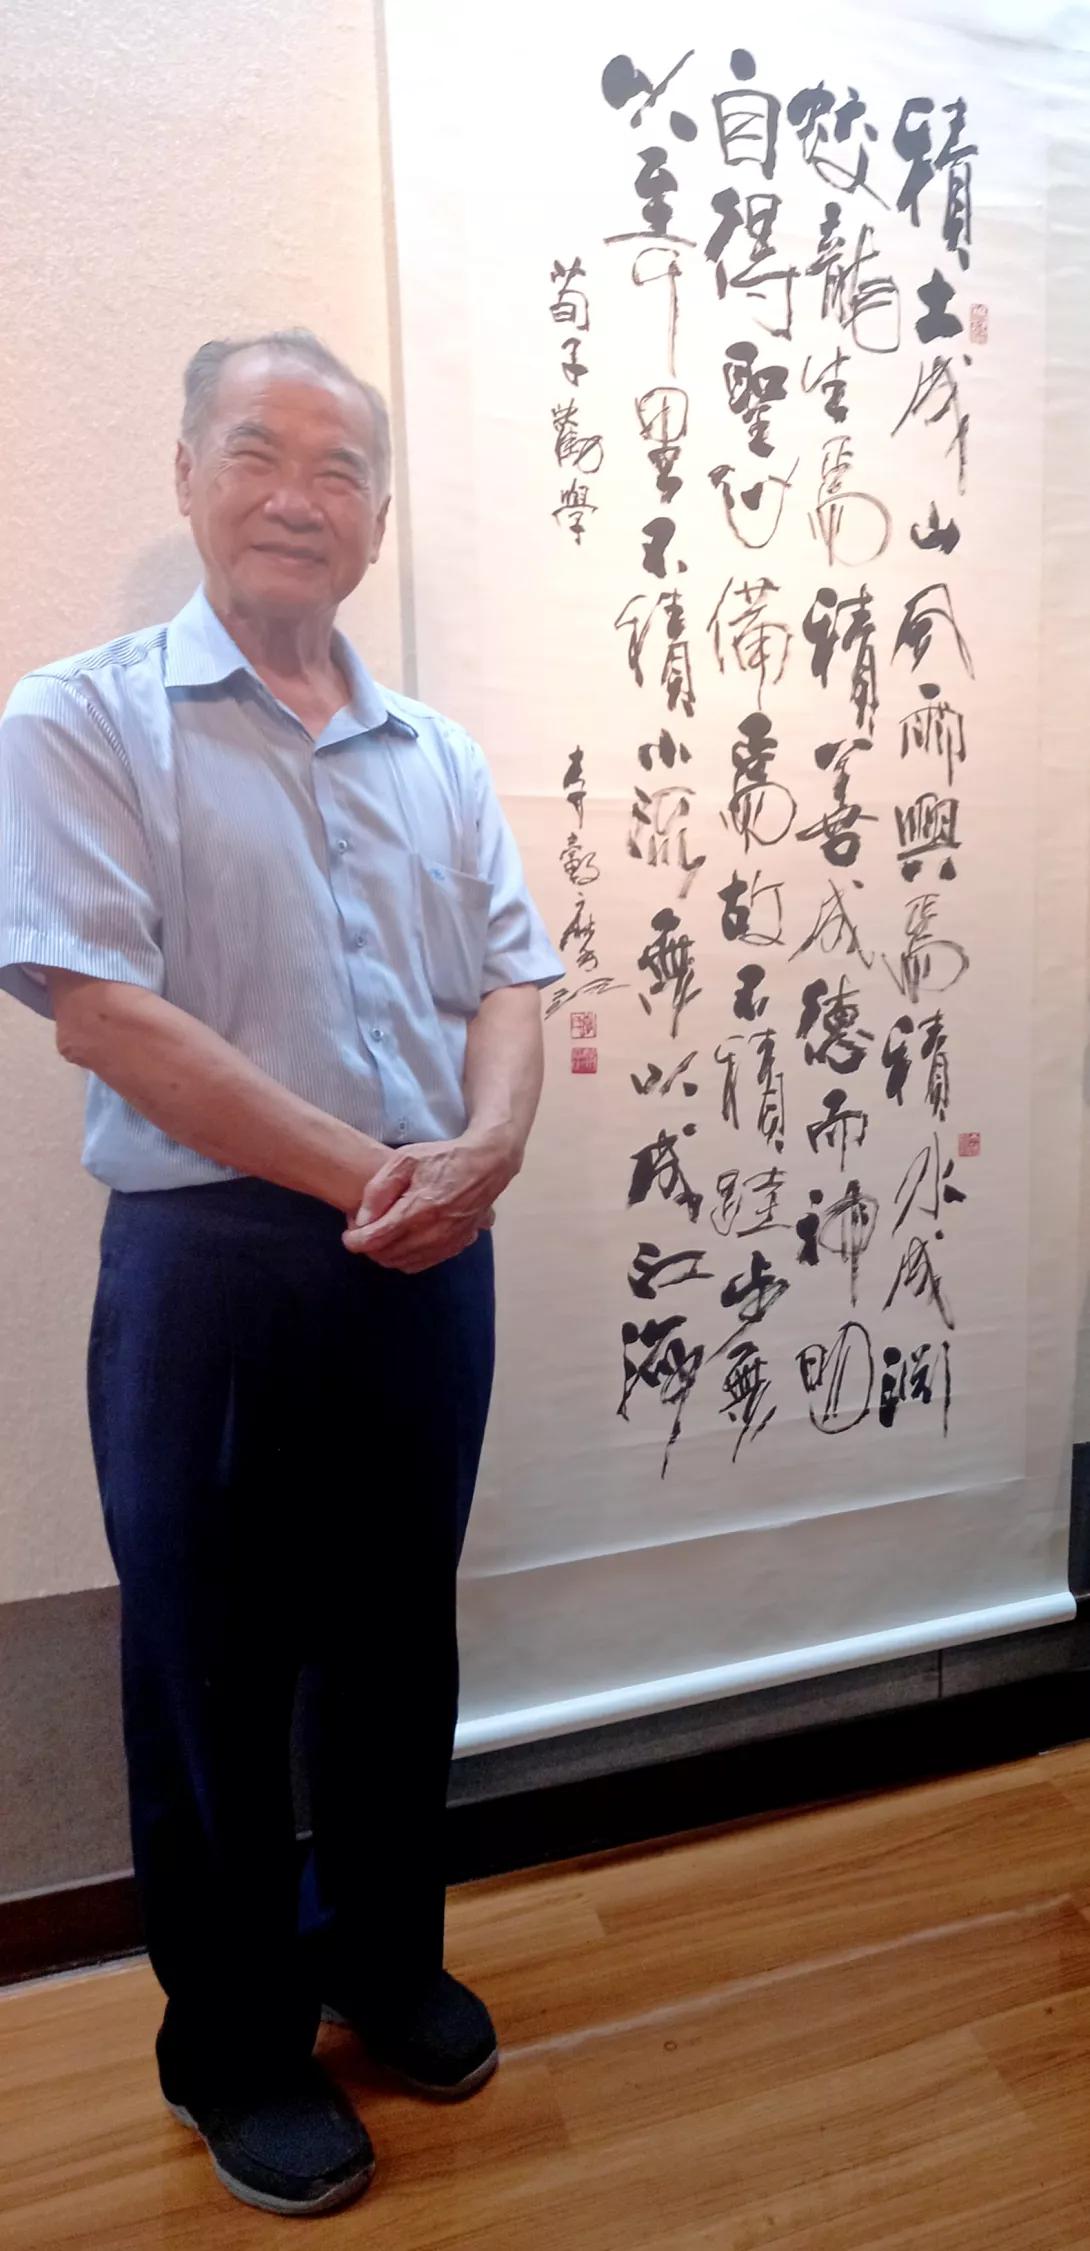 積土成山風雨興焉積水成淵
蛟龍生焉積善成德而神明
自得聖心備焉故不積跬步無
以至千里不積小流無以成江海
荀子勸學
李轂摩